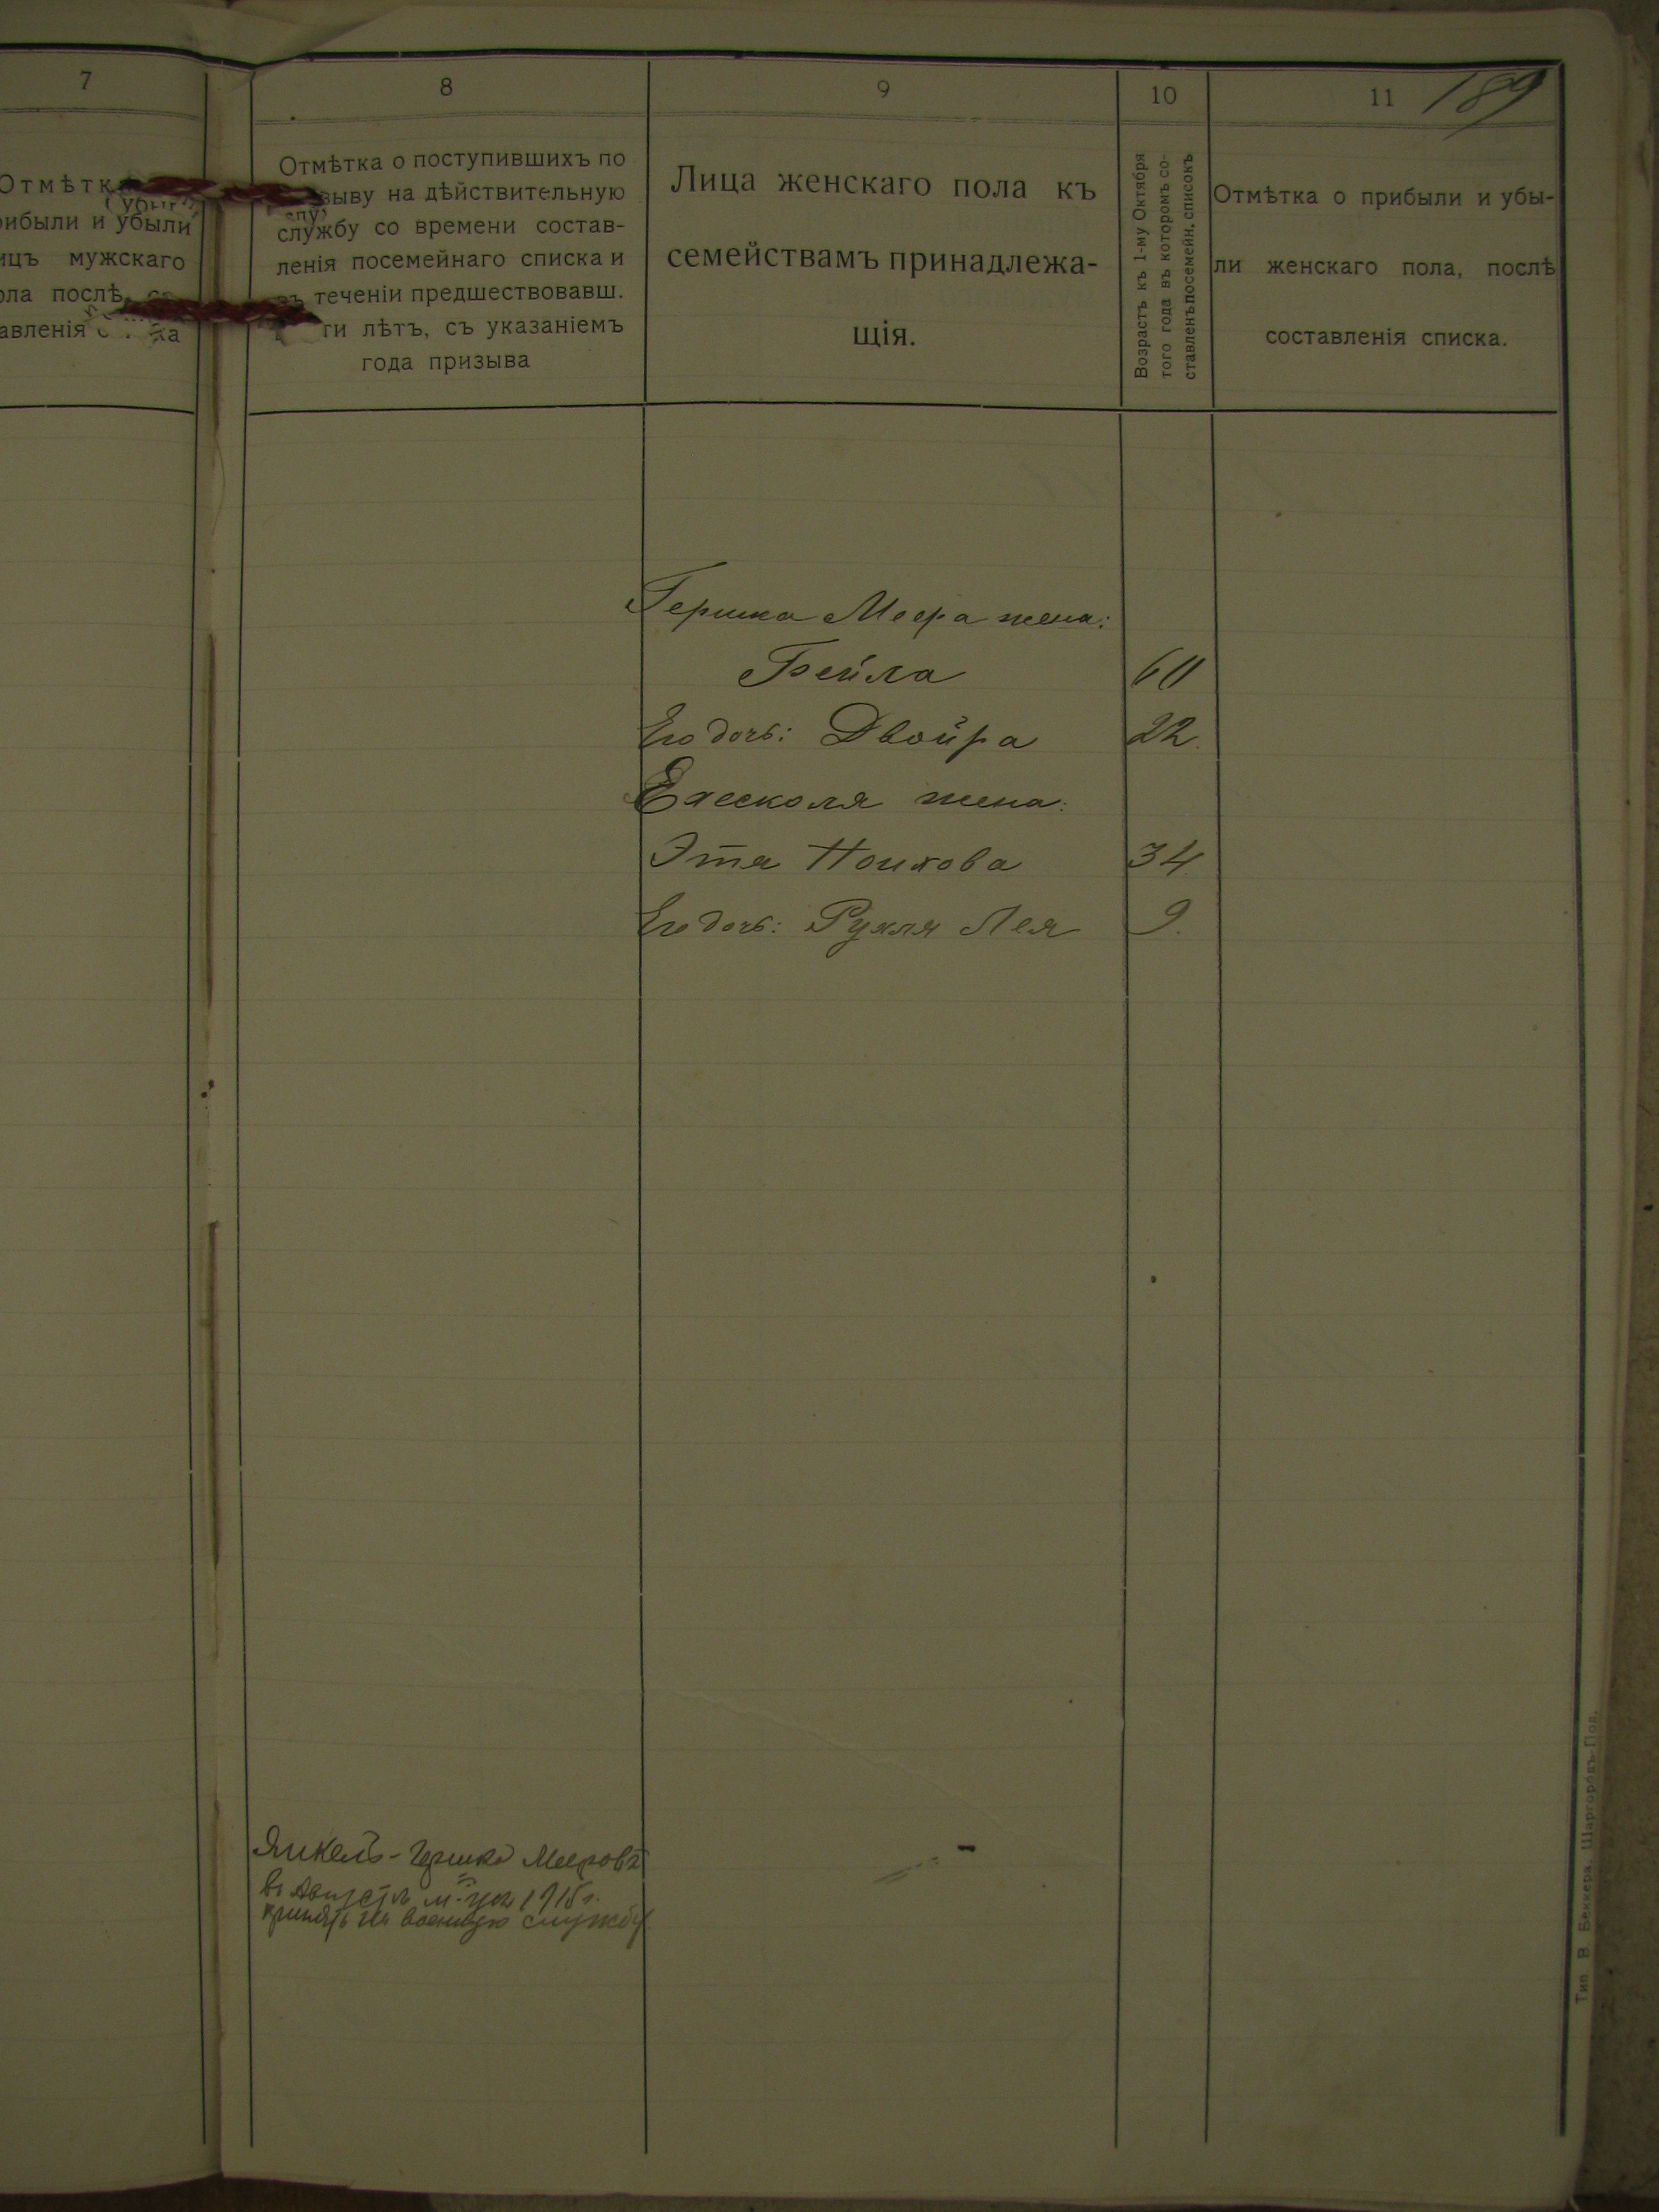 7
Отмѣтк
рибыли и убыли
ицъ мужскаго
ола послѣ
авленія
8
Отмѣтка о поступившихъ по
зыву на дѣйствительную
службу со времени состав-
ленія посемейнаго списка и
въ теченіи предшествовавш.
ти лѣтъ, съ указаніемъ
года призыва
9
Лица женскаго пола къ
семействамъ принадлежа-
щія.
10
Возрастъ къ 1-му Октября
того года въ которомъ со-
ставленъ посемейн. списокъ
11
189
Отмѣтка о прибыли и убы-
ли женскаго пола, послѣ
составленія списка.
Гершка Меера жена:
Бейла 60
Его дочь: Двойра 22.
жена:
Эта 34
Его дочь: Рухля Лея 9.
Янкель-Гершко Мееровъ
въ Августѣ 1915 г.
принятъ на военную службу
Тип. В. Беккера, Шаргородъ-Под.